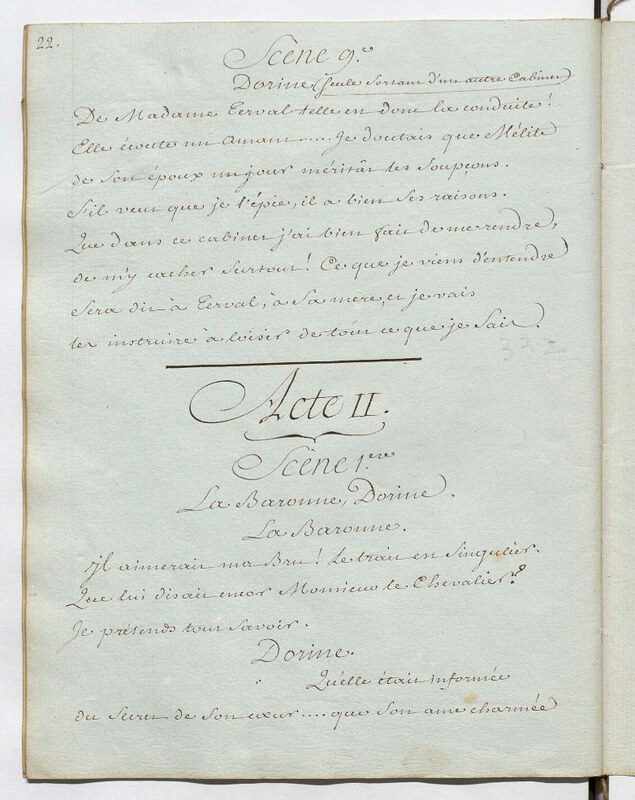 22.
Scène 9.e
Dorine (seule sortant d'un autre Cabinet)
De Madame Terval telle est donc la conduite!
Elle écoute un amant.... Je doutais que Mélite
de son époux un jour méritât les soupçons.
S'il veut que je l'épie, il a bien ses raisons.
Que dans ce cabinet j'ai bien fait de me rendre,
de m'y cacher surtout! Ce que je viens d'entendre
Sera dit à Terval, à sa mere, et je vais
les instruire à loisir de tout ce que je sais.
332
Acte II.
Scène 1.ere
La Baronne, Dorine.
La Baronne.
Il aimerait ma Bru! Le trait est singulier.
Que lui disait encor Monsieur le Chevalier?
Je prétends tout savoir.
Dorine.
Qu'elle était informée
du secret de son cœur.... que son ame charmée